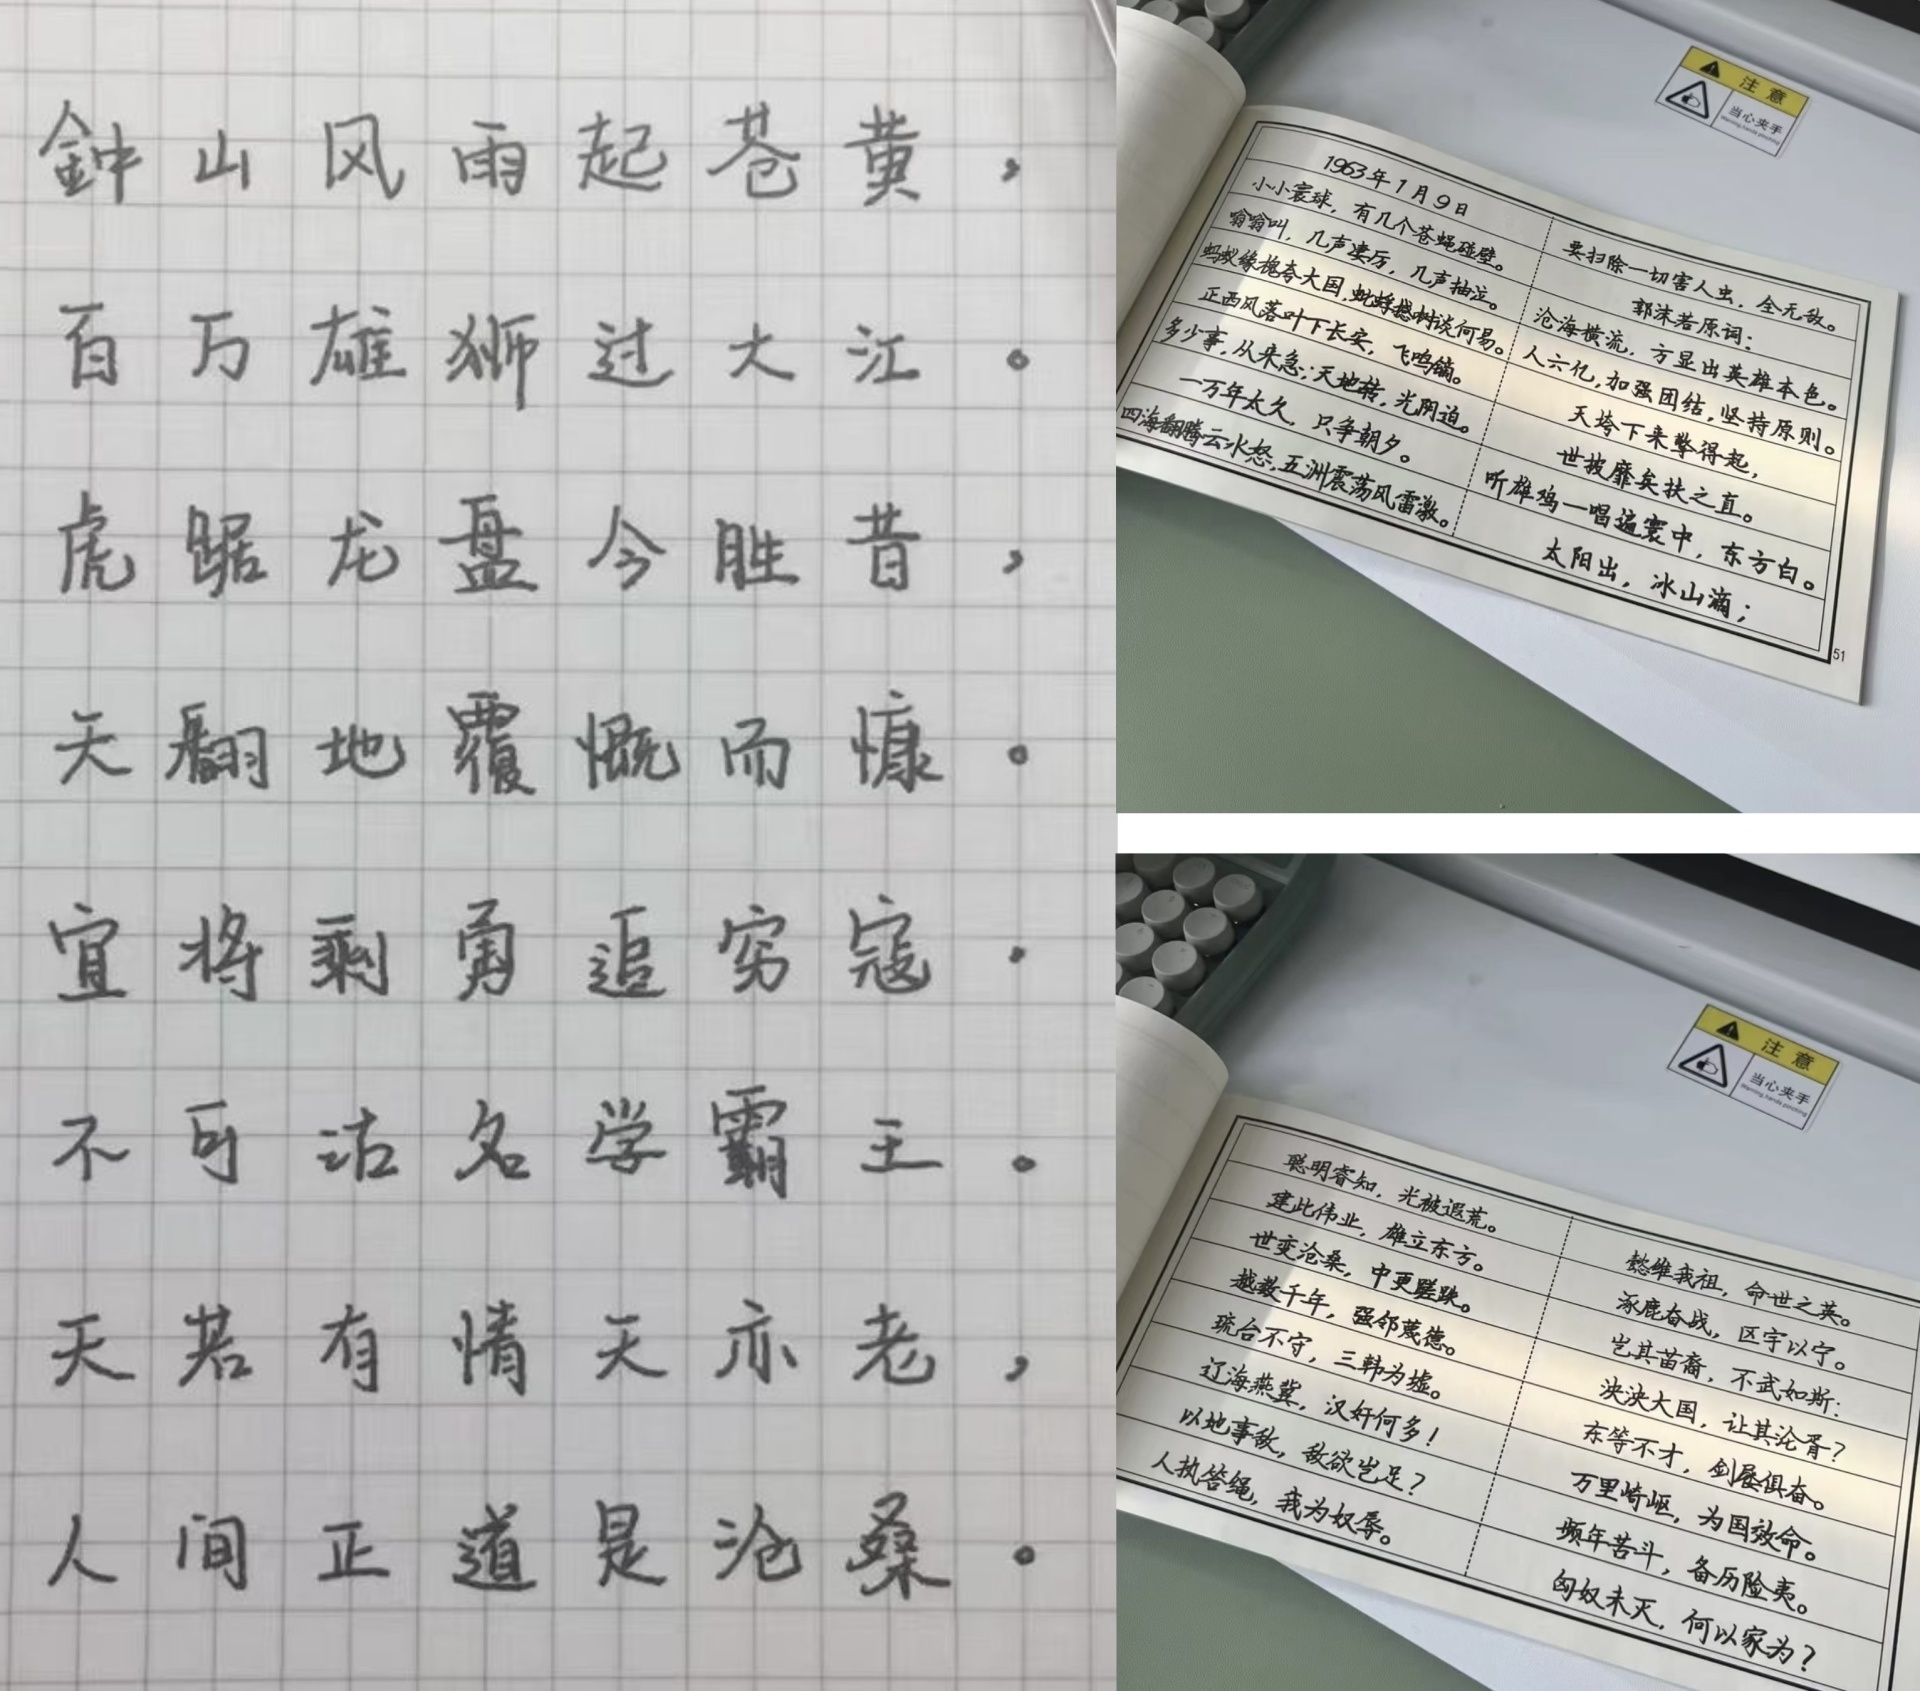 鈡山风雨起苍黄，
百万雄狮过大江。
虎踞龙盘今胜昔，
天翻地覆慨而慷。
宜将剩勇追穷寇，
不可沽名学霸王。
天若有情天亦老，
人间正道是沧桑。
注意
当心夹手
Warning hands pinching
1963年1月9日
小小寰球，有几个苍蝇碰壁。
嗡嗡叫，几声凄厉，几声抽泣。
蚂蚁缘槐夸大国，蚍蜉撼树谈何易。
正西风落叶下长安，飞鸣镝。
多少事，从来急；天地转，光阴迫。
一万年太久，只争朝夕。
四海翻腾云水怒，五洲震荡风雷激。
要扫除一切害人虫，全无敌。
郭沫若原词：
沧海横流，方显出英雄本色。
人六亿，加强团结，坚持原则。
天垮下来擎得起，
世披靡矣扶之直。
听雄鸡一唱遍寰中，东方白。
太阳出，冰山滴；
51
注意
当心夹手
Warning hands pinching
聪明睿知，光被遐荒。
建此伟业，雄立东方。
世变沧桑，中更蹉跌。
越数千年，强邻蔑德。
琉台不守，三韩为墟。
辽海燕冀，汉奸何多！
以地事敌，敌欲岂足？
人执笞绳，我为奴辱。
懿维我祖，命世之英。
涿鹿奋战，区宇以宁。
岂其苗裔，不武如斯：
泱泱大国，让其沦胥？
东等不才，剑屦俱奋。
万里崎岖，为国效命。
频年苦斗，备历险夷。
匈奴未灭，何以家为？